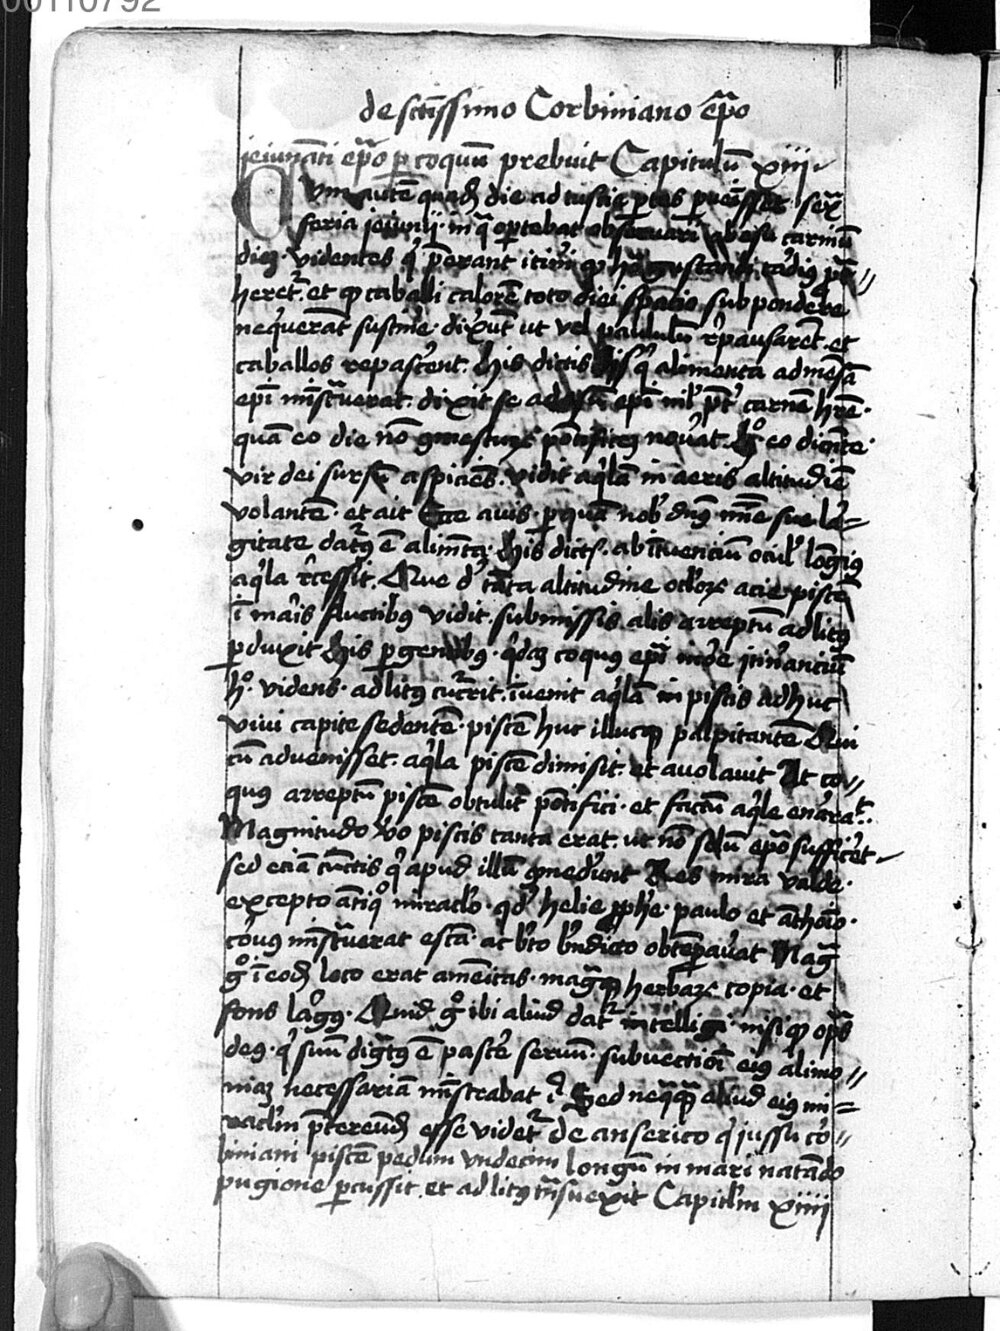 00110792
de sctissimo Corbiniano epo
ieiunati epo p coquu prebuit Capitulu xiii
Cum aute quad die ad tuscie ptes puenisset sex
feria ieiunij in q optebat obseruari ab esu carniu
dieq videntes q perant
heret et q caballi calore toto diei spacio sub pondere
nequerat sustine dixut ut vel paululu rpausaret et
caballos repascent his dictis his q alimenta admesa
epi mistuerat dixit se ad epi carne hre
qua eo die no pontifice nouat eo dicente
vir dei sursu aspiciens vidit aqla in aeris altitudie
volante et ait Ecce auis p qua nob dns mie sue la=
gitate datus e alimeta his dictis ab intuenciu ocul longius
aqla rcessit Que d tata altitudine oclor acie pisce
i maris fluctibus vidit submissis alis arreptu ad litus
pduxit his pgentibus qda coquus epi more itinanciu
h videns ad litus cucrit iuenit aqla in piscis adhuc
viui capite sedente pisce huc illucq palpitante Qui
cu aduenisset aqla pisce dimisit et auolauit At co=
quus arreptu pisce obtulit potifici et factu aqle enarat
Magnitudo vo piscis tanta erat ut no solu epo sufficet
sed ecia cuctis q apud illu comedunt Res mira valde
excepto atiq miraclo qd helie pphe paulo et athoio
corus mistuerat esca ac bto bndicto obtepauat Mag
g i eod loco erat amenitas magq herbar copia et
fons largus Quid g ibi aliud dat intelligi nisi q ops
deus q suu dignatus e pasce seruu subuectioi eius alimo=
niaq necessaria mistrabat Sed neqq aliud eius mi=
raclm ptereund esse videt de anserico q iussu co=
biniani pisce pedum vndecim longu in mari natado
pugione pcussit et ad litus tnsuexit Capitlm xiiii